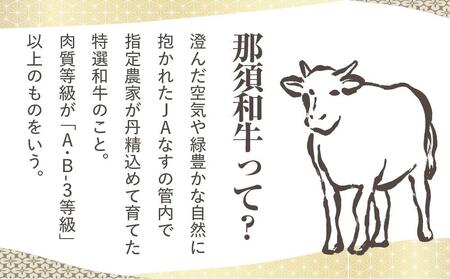 那須和牛って?
澄んだ空気や緑豊かな自然に
抱かれたJAなすの管内で
指定農家が丹精込めて育てた
特選和牛のこと。
肉質等級が「A・B-3等級」
以上のものをいう。